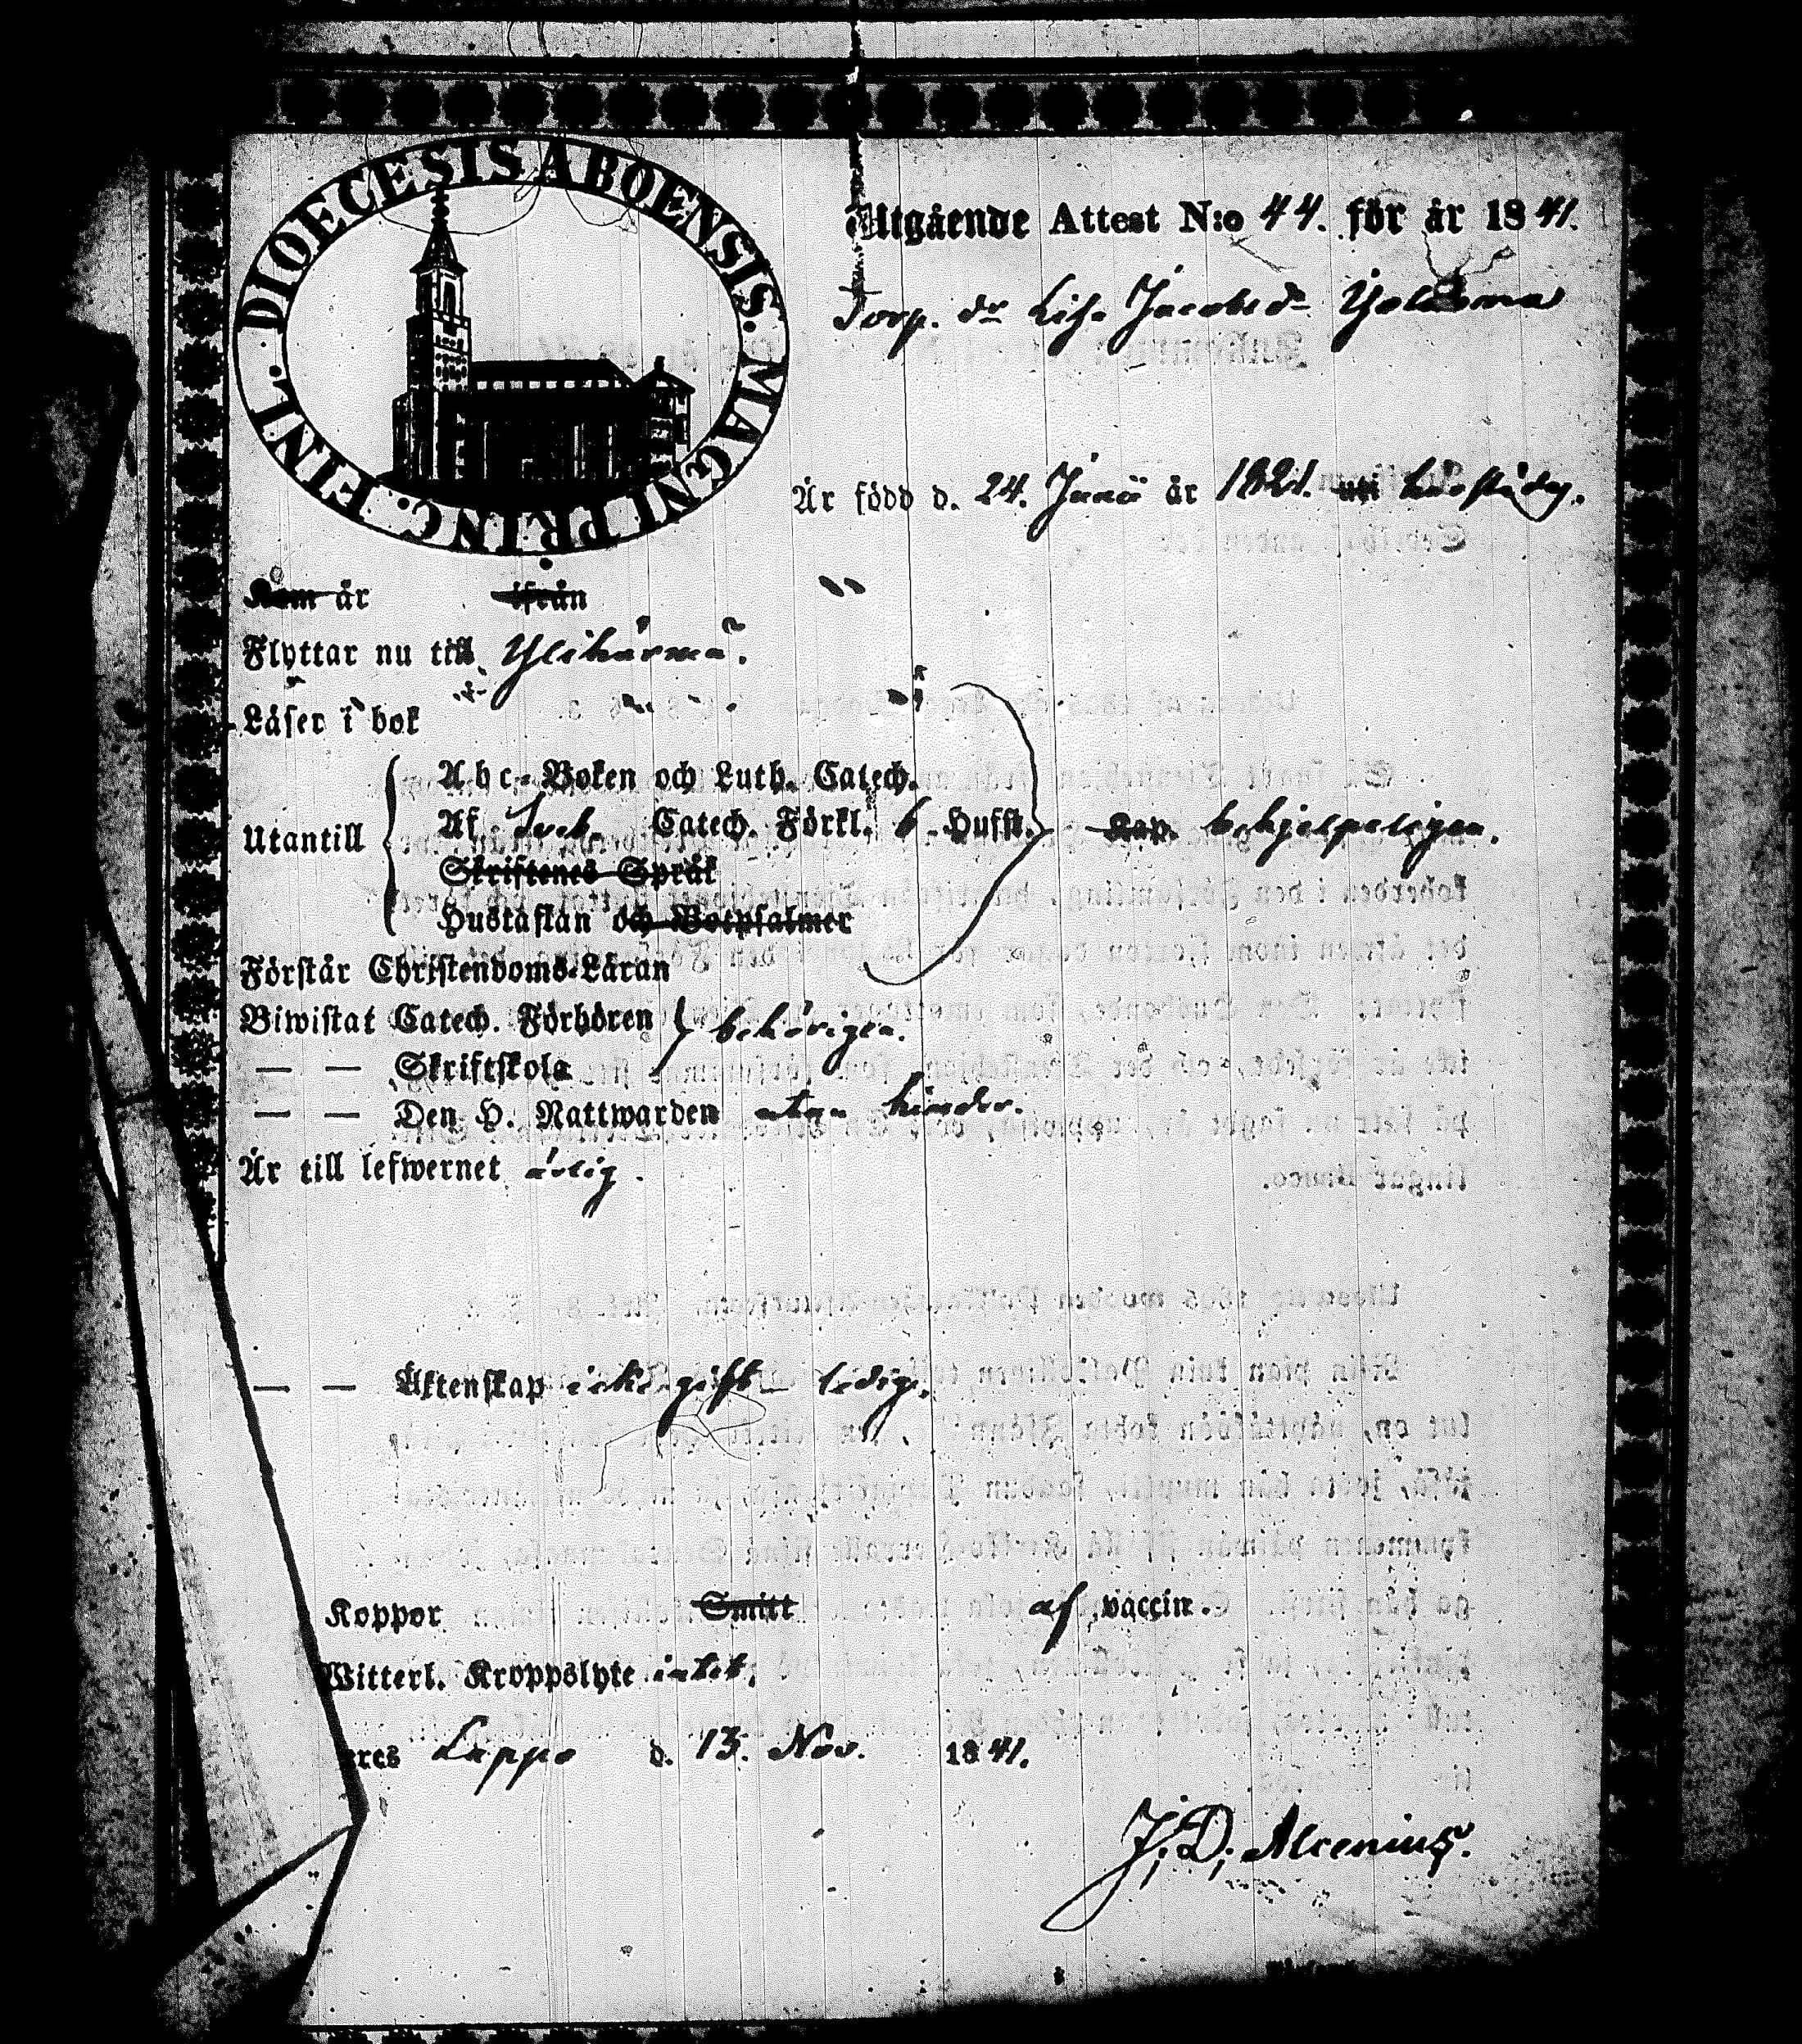 DIOECESIS ABOENSIS. MAGNI PRINC. FINL.
Utgående Attest N:o 44. för år 1841.
Torp. dr Lisa Jacobsdr
Är född d. 24. Junii år 1821. uti härstädes.
Kom år ifrån
Flyttar nu till Ylihärmä.
Läser i bok
Utantill
Abc-Boken och Luth. Catech.
Af Sveb. Catech. Förkl. 6 Hufst. Kap. behjelpeligen.
Skriftenes Språk
Hustaflan och Botpsalmer
Förstår Christendoms-Läran
Biwistat Catech. Förhören behörigen.
— — Skriftskola
— — Den H. Nattwarden utan hinder.
Är till lefwernet ärlig.
— — Äktenskap icke gift - ledig.
Koppor Smitt af vaccin.
Witterl. Kroppslyte intet.
eres Lappo d. 13. Nov. 1841.
J. D. Alcenius.